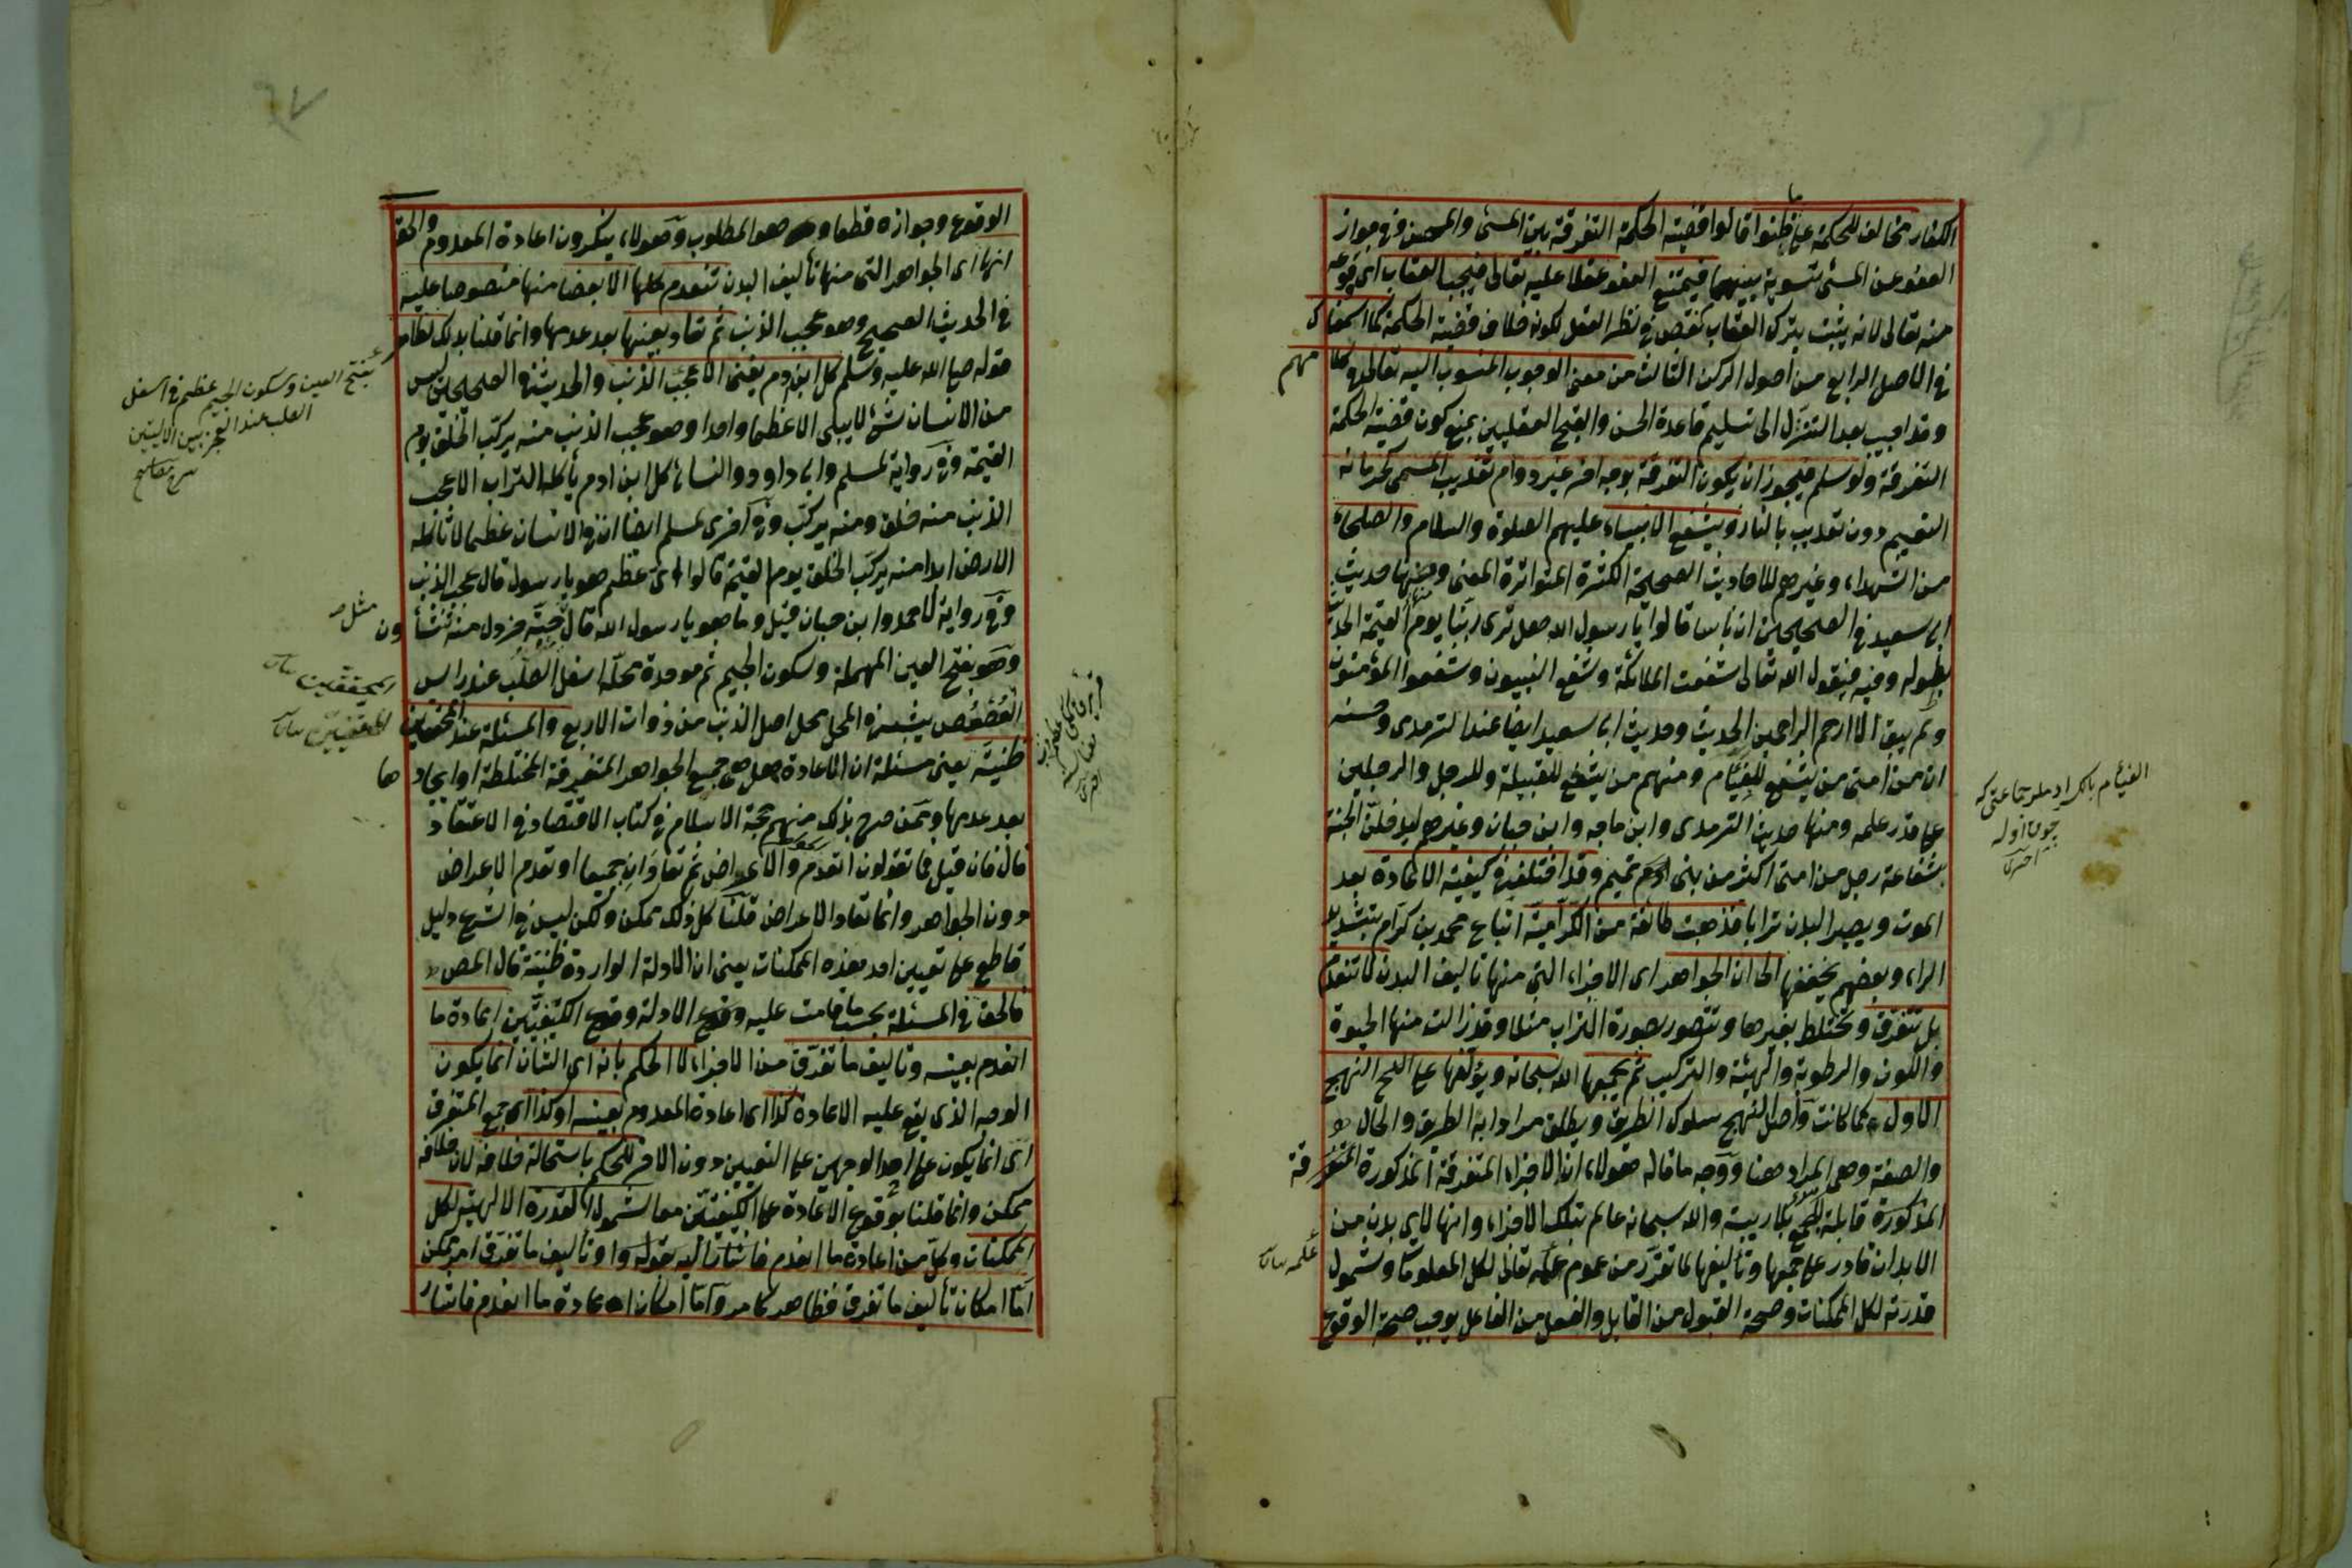 الكفار مخالف للحكمة على ما ظنوا قالوا قضية الحكمة التفرقة بين المسئ والمحسن وفي جواز
العفو عن المسئ تسوية بينهما فيمتنع العفو عقلا عليه تعالى فيجب العقاب اى وقوعه
منه تعالى لانه يثبت بترك العقاب نقص في نظر العقل لكونه خلاف قضية الحكمة كما اسمعناك
في الاصل الرابع من اصول الركن الثالث من معنى الوجوب المنسوب اليه تعالى
وقد اجيب بعد التنزل الى تسليم قاعدة الحسن والقبح العقليين بمنع كون قضية الحكمة
التفرقة ولو سلم فيجوز ان يكون التفرقة بوجه اخر غير دوام تعذيب المسئ كحرمانه
النعيم دون تعذيب بالنار ويشفع الانبياء عليهم الصلوة والسلام والصلحاء
من الشهداء وغيرهم للاحاديث الصحيحة الكثيرة المتواترة المعنى ومنها حديث
ابى سعيد في الصحيحين ان ناسا قالوا يا رسول الله هل نرى ربنا يوم القيمة الحديث
بطوله وفيه فيقول الله تعالى شفعت الملائكة وشفع النبيون وشفعوا المؤمنون
ولم يبق الا ارحم الراحمين الحديث وحديث ابى سعيد ايضا عند الترمدى وحسنه
ان من امتى من يشفع للفئام ومنهم من يشفع للقبيلة وللرجل والرجلين
على قدر علمه ومنها حديث الترمدى وابن ماجه وابن حبان وغيرهم ليدخلن الجنة
بشفاعة رجل من امتى اكثر من بنى تميم وقد اختلف في كيفية الاعادة بعد
الموت ويصير البدن ترابا فذهبت طائفة من الكرامية اتباع محمد بن كرام بتشديد
الراء وبعضهم يخففها الى ان الجواهر اى الاجزاء التي منها تاليف البدن لا تنعدم
بل تتفرق وتختلط بغيرها وتتصور بصورة التراب مثلا وقد زالت منها الحيوة
واللون والرطوبة والهيئة والتركيب ثم يجمعها الله سبحانه ويؤلفها على النهج
الاول كما كانت واصل النهج سلوك الطريق ويطلق مرادا به الطريق والحال
والصفة وهى المراد هنا ووجه ما قاله هؤلاء ان الاجزاء المتفرقة المذكورة
المذكورة قابلة للجمع بلا ريبة والله سبحانه عالم بتلك الاجزاء وانها لاى بدن من
الابدان قادر على جمعها وتأليفها لما تقرر من عموم علمه تعالى لكل المعلومات وشمول
قدرته لكل الممكنات وصحة القبول من القابل والفعل من الفاعل يوجب صحة الوقوع
مهم
المتفرقة
علمه
الفئام بالكسر
الوقوع وجوازه قطعا وهو المطلوب وهؤلاء ينكرون اعادة المعدوم والحق
انها اى الجواهر التى منها تأليف البدن تنعدم كلها الا بعضا منها منصوصا عليه
في الحديث الصحيح وهو عجب الذنب ثم تعاد بعينها بعد عدمها وانما قلنا بذلك لظاهر
قوله صلى الله عليه وسلم كل ابن ادم يفنى الا عجب الذنب والحديث في الصحيحين ليس
من الانسان شئ لا يبلى الا عظما واحدا وهو عجب الذنب منه يركب الخلق يوم
القيمة وفي رواية لمسلم وابى داود والنسائى كل ابن ادم يأكله التراب الا عجب
الذنب منه خلق ومنه يركب وفي اخرى لمسلم ايضا ان في الانسان عظما لا تأكله
الارض ابدا منه يركب الخلق يوم القيمة قالوا اى عظم هو يا رسول قال عجب الذنب
وفي رواية لاحمد وابن حبان قيل وما هو يا رسول الله قال حبة خردل منه تنشأون
وهو بفتح العين المهملة وسكون الجيم ثم موحدة محله اسفل الصلب عند راس
العصعص يشبه في المحل محل اصل الذنب من ذوات الاربع والمسئلة عند المحققين
ظنية يعنى مسئلة ان الاعادة هل هى جميع الجواهر المتفرقة المختلطة او ايجادها
بعد عدمها وممن صرح بذلك منهم حجة الاسلام في كتاب الاقتصاد في الاعتقاد
قال فان قيل فما تقولون اتعدم والاعراض ثم تعادان جميعا او تعدم الاعراض
دون الجواهر وانما تعاد الاعراض قلنا كل ذلك ممكن ولكن ليس في الشرع دليل
قاطع على تعيين احد هذه الممكنات يعنى ان الادلة الواردة ظنية قال المص
فالحق في المسئلة بحسب ما قامت عليه الادلة وقوع الكيفيتين اعادة ما
انعدم بعينه وتاليف ما تفرق من الاجزاء لا الحكم بانه اى الشأن انما يكون
الوجه الذى يقع عليه الاعادة كذا اى اعادة المعدوم بعينه او كذا اى جمع المتفرق
اى انما يكون على احد الوجهين على التعيين دون الاخر للحكم باستحالة خلافه لان خلافه
ممكن وانما قلنا بوقوع الاعادة على الكيفيتين معا لشمول القدرة الالهية لكل
الممكنات وكل من اعادة ما انعدم فاشار اليه بقوله او تأليف ما تفرق امر ممكن
اما امكان تأليف ما تفرق فظاهر كما مر واما امكان اعادة ما انعدم فاشار
بفتح العين وسكون الجيم عظم في اسفل
الصلب عند العجز بين الاليتين
مثل
المحققين